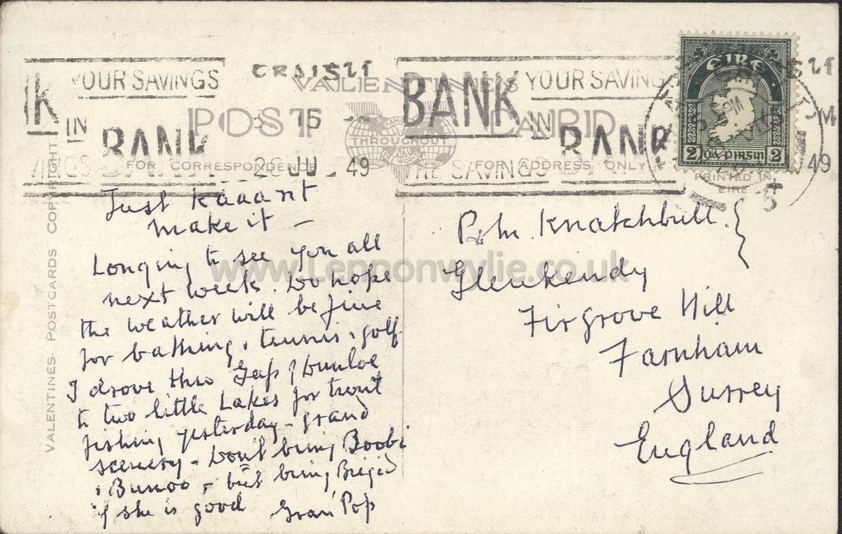 YOUR SAVINGS
IN
BANK
3 15
2 JU 49
YOUR SAVING
BANK
IN
BANK
SAVINGS
49
VALENTINE'S
POST CARD
THROUGHOUT
FOR CORRESPONDENCE
FOR ADDRESS ONLY
PRINTED IN
EIRE
ÉIRE
2 2
VALENTINES POSTCARDS COPYRIGHT.
www.Lennonwylie.co.uk
Just Kaaan't
make it –
Longing to see you all
next week. Do hope
the weather will be fine
for bathing, tennis, golf.
I drove thro Gap of Dunloe
to two little Lakes for trout
fishing yesterday – grand
scenery – Don't bring Boobi
& Bunoo – but bring Brigid
if she is good Gran Pop
Knatchbull
Glenkendy
Firgrove Hill
Farnham
Surrey
England